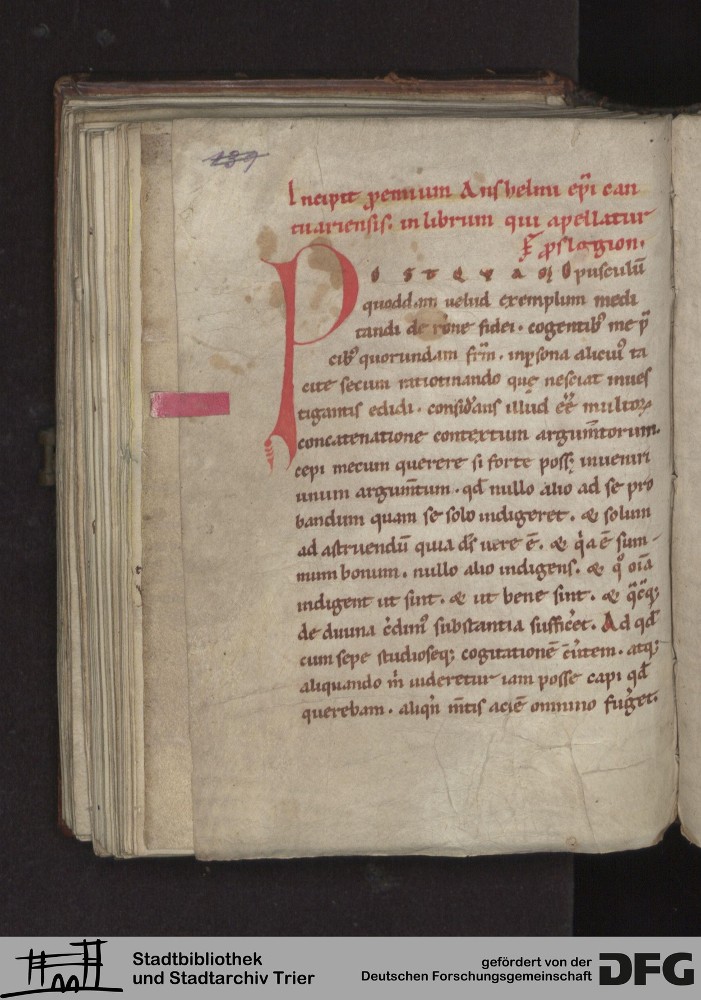 189
Incipit p̄emium Anshelmi ep̄i can
tuariensis. in librum qui apellatur
p̱slogion.
POSTQVAꝳ Opusculū
quoddam uelud exemplum medi
tandi de rōne fidei. cogentib; me p̄
cib; quorundam fr̄m. inp̱sona alicui᷒ ta
cite secum ratiotinando quę nesciat inues
tigantis edidi. consid̓ans illud eē̄ multoꝝ
concatenatione contextum argum̄torum.
cepi mecum querere si forte possę inueniri
unum argum̄tum. qđ nullo alio ad se pro
bandum quam se solo indigeret. & solum
ad astruendū quia dꝰs uere ē. & q̓a ē sum-
mum bonum. nullo alio indigens. & q° oīa
indigent ut sint. & ut bene sint. & q̓cq̓;
de diuina c̓dim᷒ substantia suffic̓et. Ad qđ
cum sepe studioseq; cogitationē c̓ūtem. atq;
aliquando m̓ uideretur iam posse capi qđ
querebam. aliqn̄ m̄tis aciē omnino fug̓et.
Stadtbibliothek
und Stadtarchiv Trier
gefördert von der
Deutschen Forschungsgemeinschaft
DFG